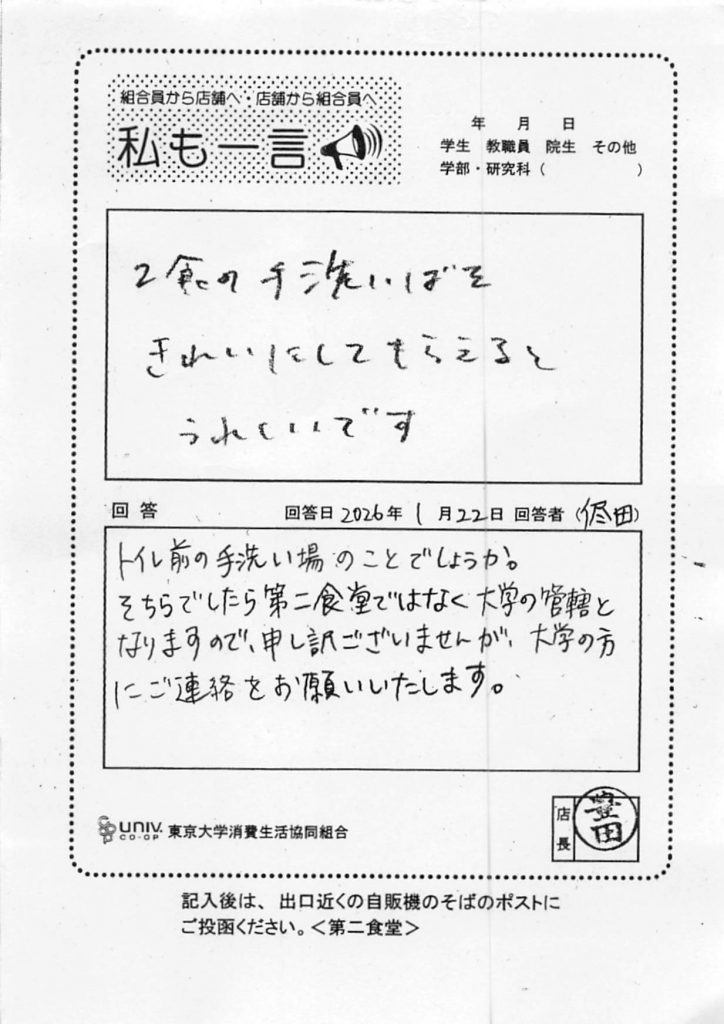 組合員から店舗へ・店舗から組合員へ
私も一言
年 月 日
学生 教職員 院生 その他
学部・研究科( )
2食の手洗いばを
きれいにしてもらえると
うれしいです
回答 回答日 2026年 1月22日 回答者(田)
トイレ前の手洗い場のことでしょうか。
そちらでしたら第二食堂ではなく大学の管轄と
なりますので、申し訳ございませんが、大学の方
にご連絡をお願いいたします。
UNIV. CO-OP 東京大学消費生活協同組合
店長 豊田
記入後は、出口近くの自販機のそばのポストに
ご投函ください。<第二食堂>